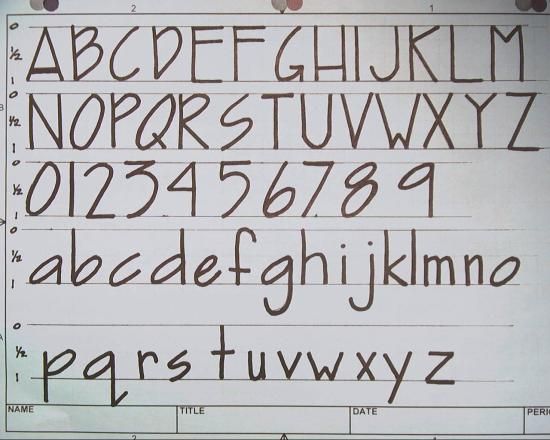 2 1
0 ½ 1 ABCDEFGHIJKLM
0 ½ 1 NOPQRSTUVWXYZ
0 ½ 1 0123456789
0 ½ 1 abcdefghijklmno
0 ½ 1 pqrstuvwxyz
NAME TITLE DATE
2 1